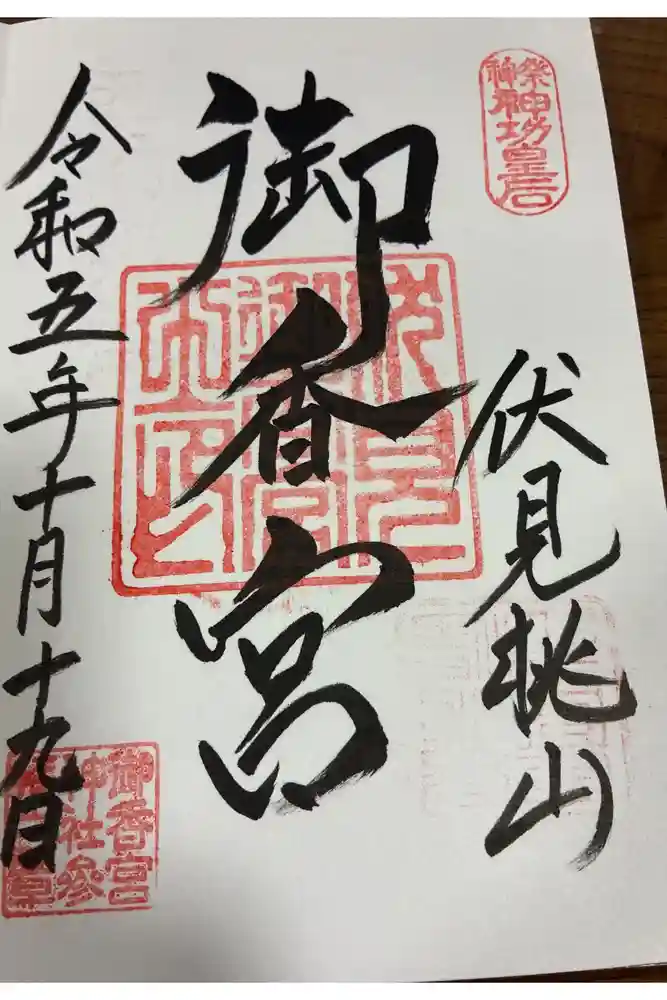 祭神神功皇后
伏見桃山
御香宮
令和五年十月十九日
御香宮
神社参